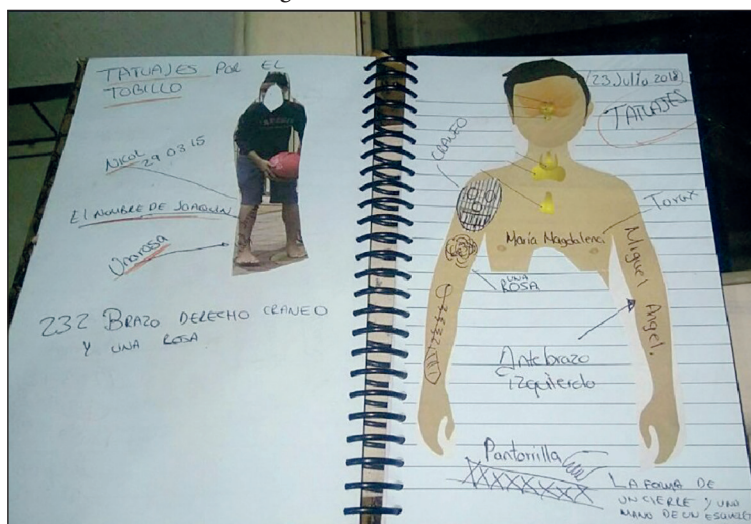 TATUAJES POR EL
TOBILLO
NICOL 29 03 15
El NOMBRE DE JOAQUIN
Una rosa
232 BRAZO DERECHO CRANEO
Y UNA ROSA
23 Julio 2018
TATUAJES
CRANEO
Torax
María Magdalena
Miguel Angel.
UNA
ROSA
Antebrazo
izquierdo
Pantorrilla
LA FORMA DE
UN CIERRE Y UNA
MANO DE UN